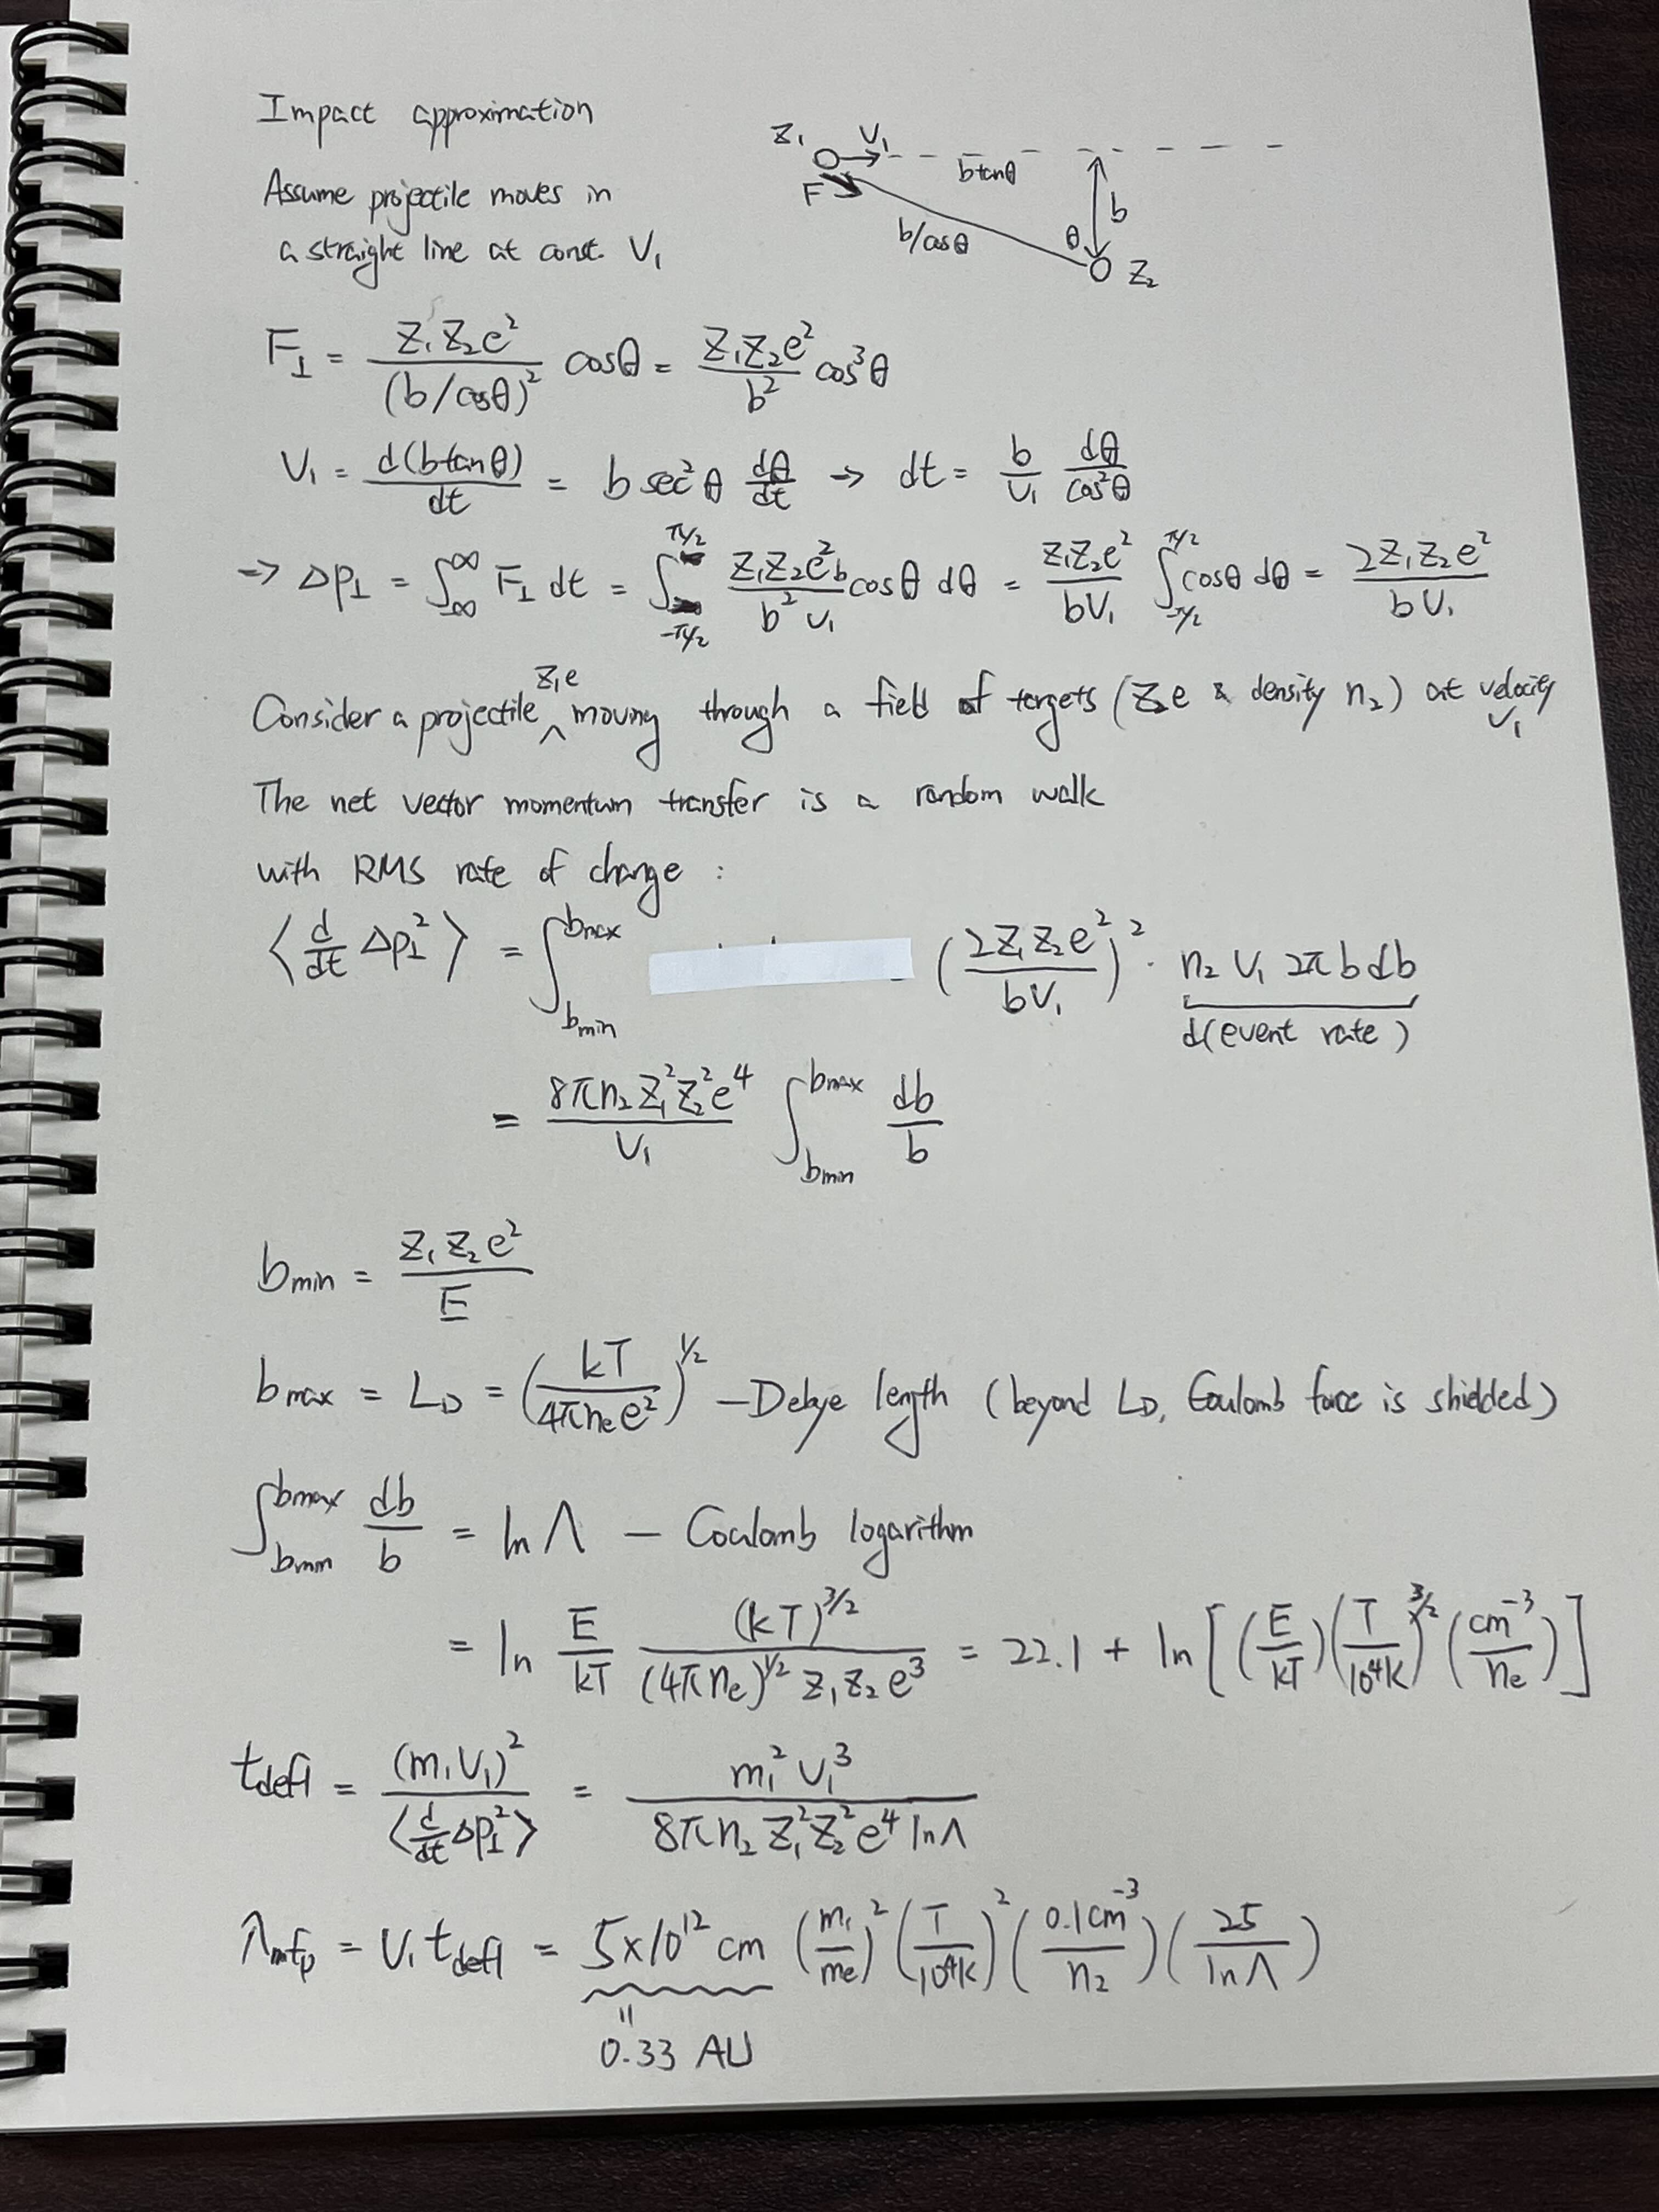 Impact approximation
Z₁ V₁
b tanθ
F
b
b/cosθ
θ
Z₂
Assume projectile moves in
a straight line at const. V₁
F⊥ = Z₁Z₂e² / (b/cosθ)² cosθ = Z₁Z₂e² / b² cos³θ
V₁ = d(b tanθ)/dt = b sec²θ dθ/dt → dt = b/V₁ dθ/cos²θ
→ Δp⊥ = ∫_{-∞}^{∞} F⊥ dt = ∫_{-π/2}^{π/2} Z₁Z₂e²b / b²V₁ cosθ dθ = Z₁Z₂e² / bV₁ ∫_{-π/2}^{π/2} cosθ dθ = 2Z₁Z₂e² / bV₁
Consider a projectile ^ Z₁e moving through a field of targets (Z₂e & density n₂) at velocity V₁
The net vector momentum transfer is a random walk
with RMS rate of change :
⟨d/dt Δp⊥²⟩ = ∫_{bmin}^{bmax} (2Z₁Z₂e² / bV₁)² · n₂ V₁ 2πb db
d(event rate)
= 8πn₂Z₁²Z₂²e⁴ / V₁ ∫_{bmin}^{bmax} db/b
bmin = Z₁Z₂e² / E
bmax = L_D = (kT / 4πnₑe²)^{1/2} – Debye length (beyond L_D, Coulomb force is shielded)
∫_{bmin}^{bmax} db/b = ln Λ – Coulomb logarithm
= ln E/kT (kT)^{3/2} / (4πnₑ)^{1/2} Z₁Z₂e³ = 22.1 + ln [(E/kT)(T/10⁴K)^{3/2}(cm⁻³/nₑ)]
t_defl = (m₁V₁)² / ⟨d/dt Δp⊥²⟩ = m₁²V₁³ / 8πn₂Z₁²Z₂²e⁴ lnΛ
λ_mfp = V₁ t_defl = 5×10¹² cm (m₁/mₑ)² (T/10⁴K)² (0.1cm⁻³/n₂) (25/lnΛ)
"
0.33 AU